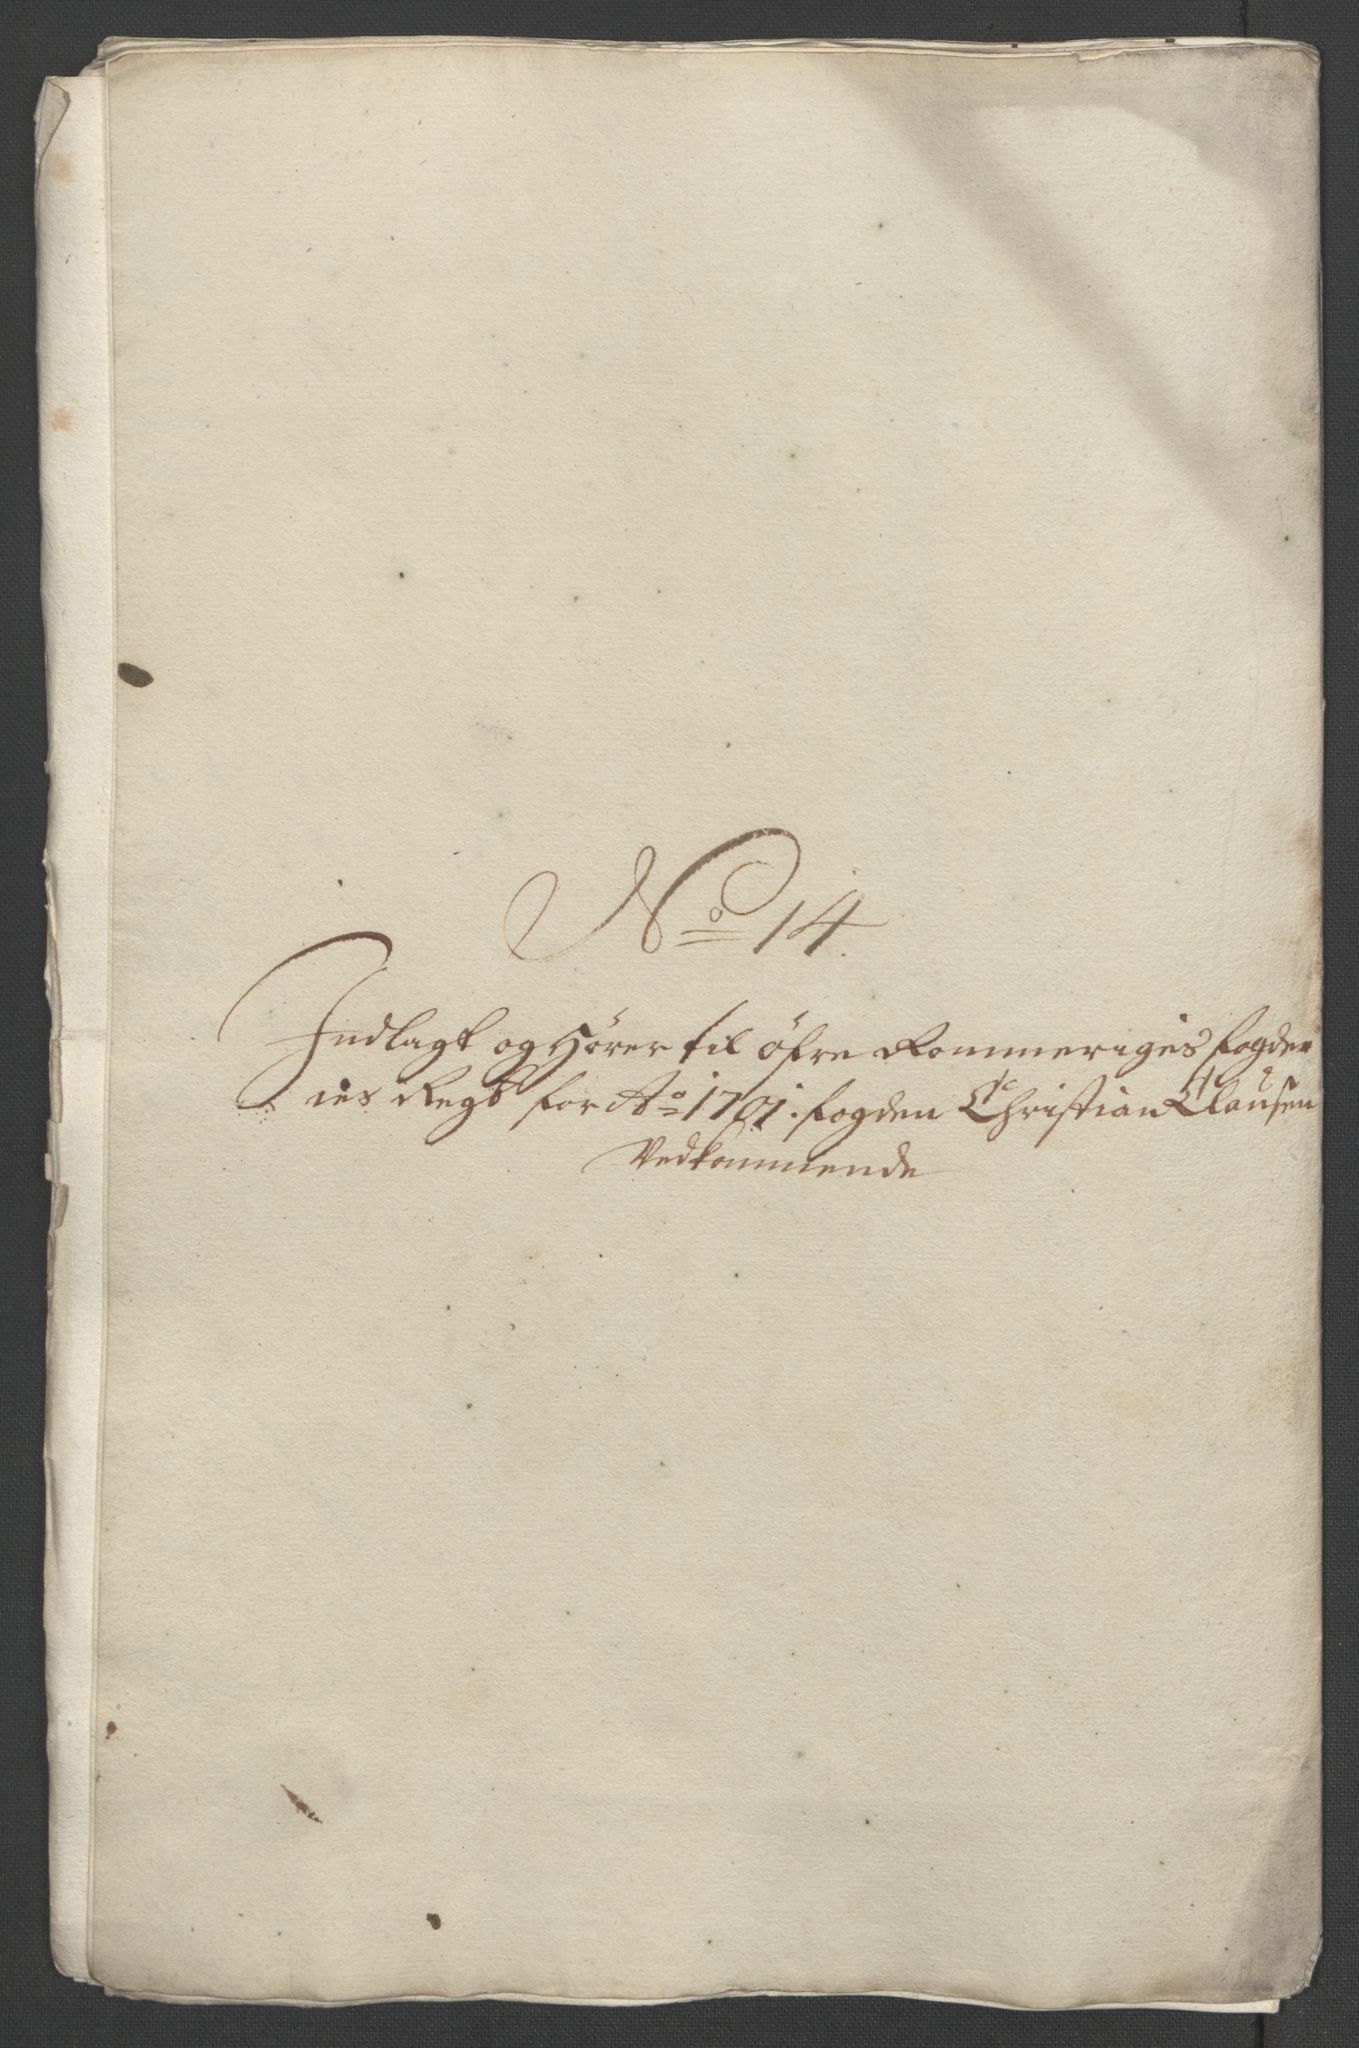 No 14.
Indlagt og Hörer til öfre Rommeriges fogder
ies Regsb for Ao 1701. fogden Christian Clausen
Vedkommende